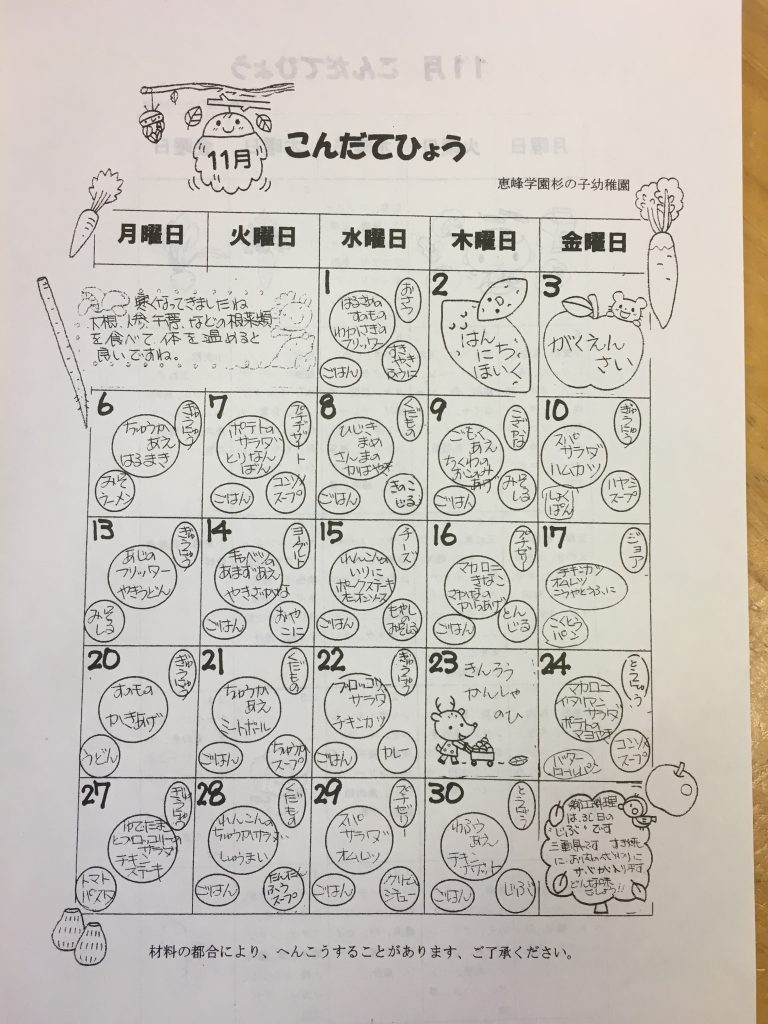 11月
こんだてひょう
恵峰学園杉の子幼稚園
月曜日 火曜日 水曜日 木曜日 金曜日
寒くなってきましたね
大根、人参、牛蒡、などの根菜類
を食べて体を温めると
良いですね。
1
はるさめの
すのもの
わかさぎの
フリッター
おさつ
すき
やき
ふうに
ごはん
2
はん
にち
ほいく
3
がくえん
さい
6
ちゅうか
あえ
はるまき
ぎゅうにゅう
みそ
ラーメン
7
ポテトの
サラダ
とりなん
ばん
プチデザート
ごはん
コンソメ
スープ
8
ひじき
まめ
さんまの
かばやき
くだもの
ごはん
きのこ
じる
9
ごもく
あえ
ちくわの
おこのみ
あげ
ごはん
みそ
しる
10
スパ
サラダ
ハムカツ
ぎゅうにゅう
しょく
ぱん
ハヤシ
スープ
13
あじの
フリッター
やきうどん
ぎゅうにゅう
みそ
しる
14
キャベツの
あまずあえ
やきざかな
ヨーグルト
ごはん
おや
こに
15
れんこんの
いりに
ポークステーキ
オニオンソース
チーズ
ごはん
もやしの
みそしる
16
マカロニ
きなこ
さかなの
からあげ
プチゼリー
ごはん
とん
じる
17
チキンカツ
オムレツ
こうやとうふに
ジョア
こくとう
パン
20
すのもの
かきあげ
ぎゅうにゅう
うどん
21
ちゅうか
あえ
ミートボール
くだもの
ごはん
ちゅうか
スープ
22
ブロッコリー
サラダ
チキンカツ
ぎゅうにゅう
ごはん
カレー
23
きんろう
かんしゃ
のひ
24
マカロニ
イタリアン
サラダ
ポテトの
マヨやき
とうにゅう
バター
ロールパン
コンソメ
スープ
27
ゆでたまご
とブロッコリーの
サラダ
チキン
ステーキ
ぎゅうにゅう
トマト
パスタ
28
れんこんの
ちゅうかサラダ
しゅうまい
くだもの
ごはん
たんたん
ふう
スープ
29
スパ
サラダ
オムレツ
プチゼリー
ごはん
クリーム
シチュー
30
あえ
チキン
ナゲット
とうにゅう
ごはん
じぶ
郷土料理
は、30日の
"じふ"です
三重県です すき焼
に お肉のかわりに
どんな味
でしょう!!
材料の都合により、へんこうすることがあります、ご了承ください。